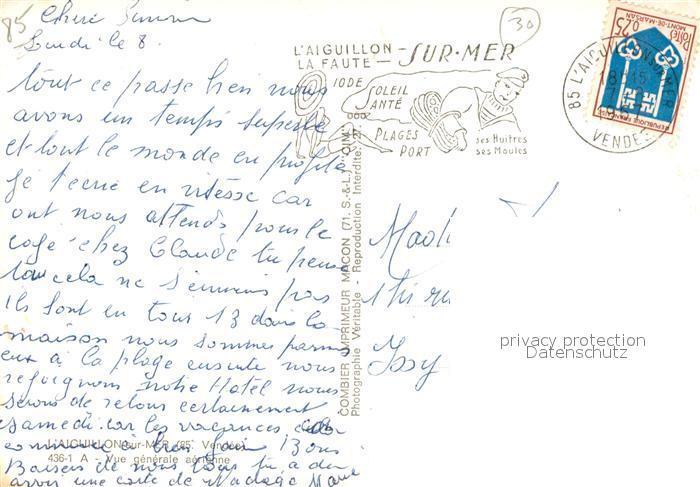 85
30
Cheri Simon
Lundi le 8.
tout ce passe bien nous
avons un temps superbe
et tout le monde en profite
je t'ecrie en vitesse car
ont nous attend pour le
café chez Claude tu pense
cela ne s'ennuis pas
ils sont en tous 13 dans la
maison nous sommes parmis
eux à la plage ensuite nous
rejoignons notre Hotel nous
serons de retour certainement
samedi car les vacances
comme à bien faire Bons
Baisers de nous tous tu a du
avoir une carte de Nadage Marie
L'AIGUILLON-sur-MER (85 Vendée)
436-1 A - Vue générale aérienne
COMBIER IMPRIMEUR MACON (71. S.-&-L.) "CIM"
Photographie Véritable - Reproduction Interdite.
L'AIGUILLON - SUR-MER
LA FAUTE -
IODE
SOLEIL
SANTÉ
PLAGES
PORT
ses Huîtres
ses Moules
85 L'AIGUILLON SUR MER
18H15
VENDEE
0,25
Postes
MONT-DE-MARSAN
REPUBLIQUE FRANÇAISE
Issy
privacy protection
Datenschutz